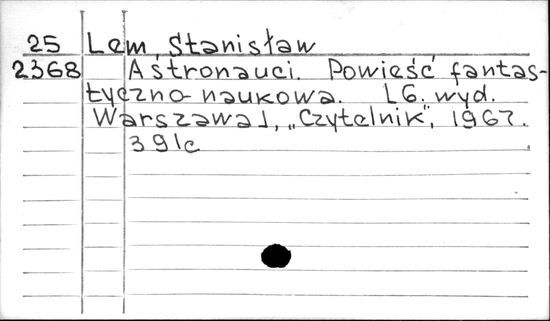 25 Lem, Stanisław
2368 Astronauci. Powieść fantas-
tyczno-naukowa. [6. wyd.
Warszawa], „Czytelnik", 1967.
391c